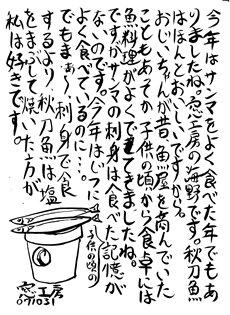 今年はサンマをよく食べた年でもあ
りましたね。窓工房の海野です。秋刀魚
はほんとおいしいですから。
おじいちゃんが昔、魚屋を商んでいた
こともあってか、子供の頃から食卓には
魚料理がよくでてきましたね。
ですがサンマの刺身は食べた記憶が
ないのです。今年はじつに
よく食べているのに…。
でもまぁ〜刺身で食
するより、秋刀魚は塩
をまぶして焼いた方が
私は好きです。
子供の頃の
窓工房
071031